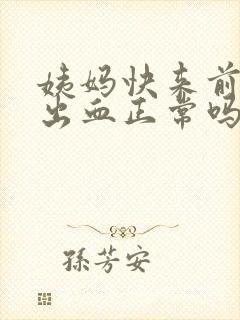 姨妈快来前
出血正常吗
孫芳安